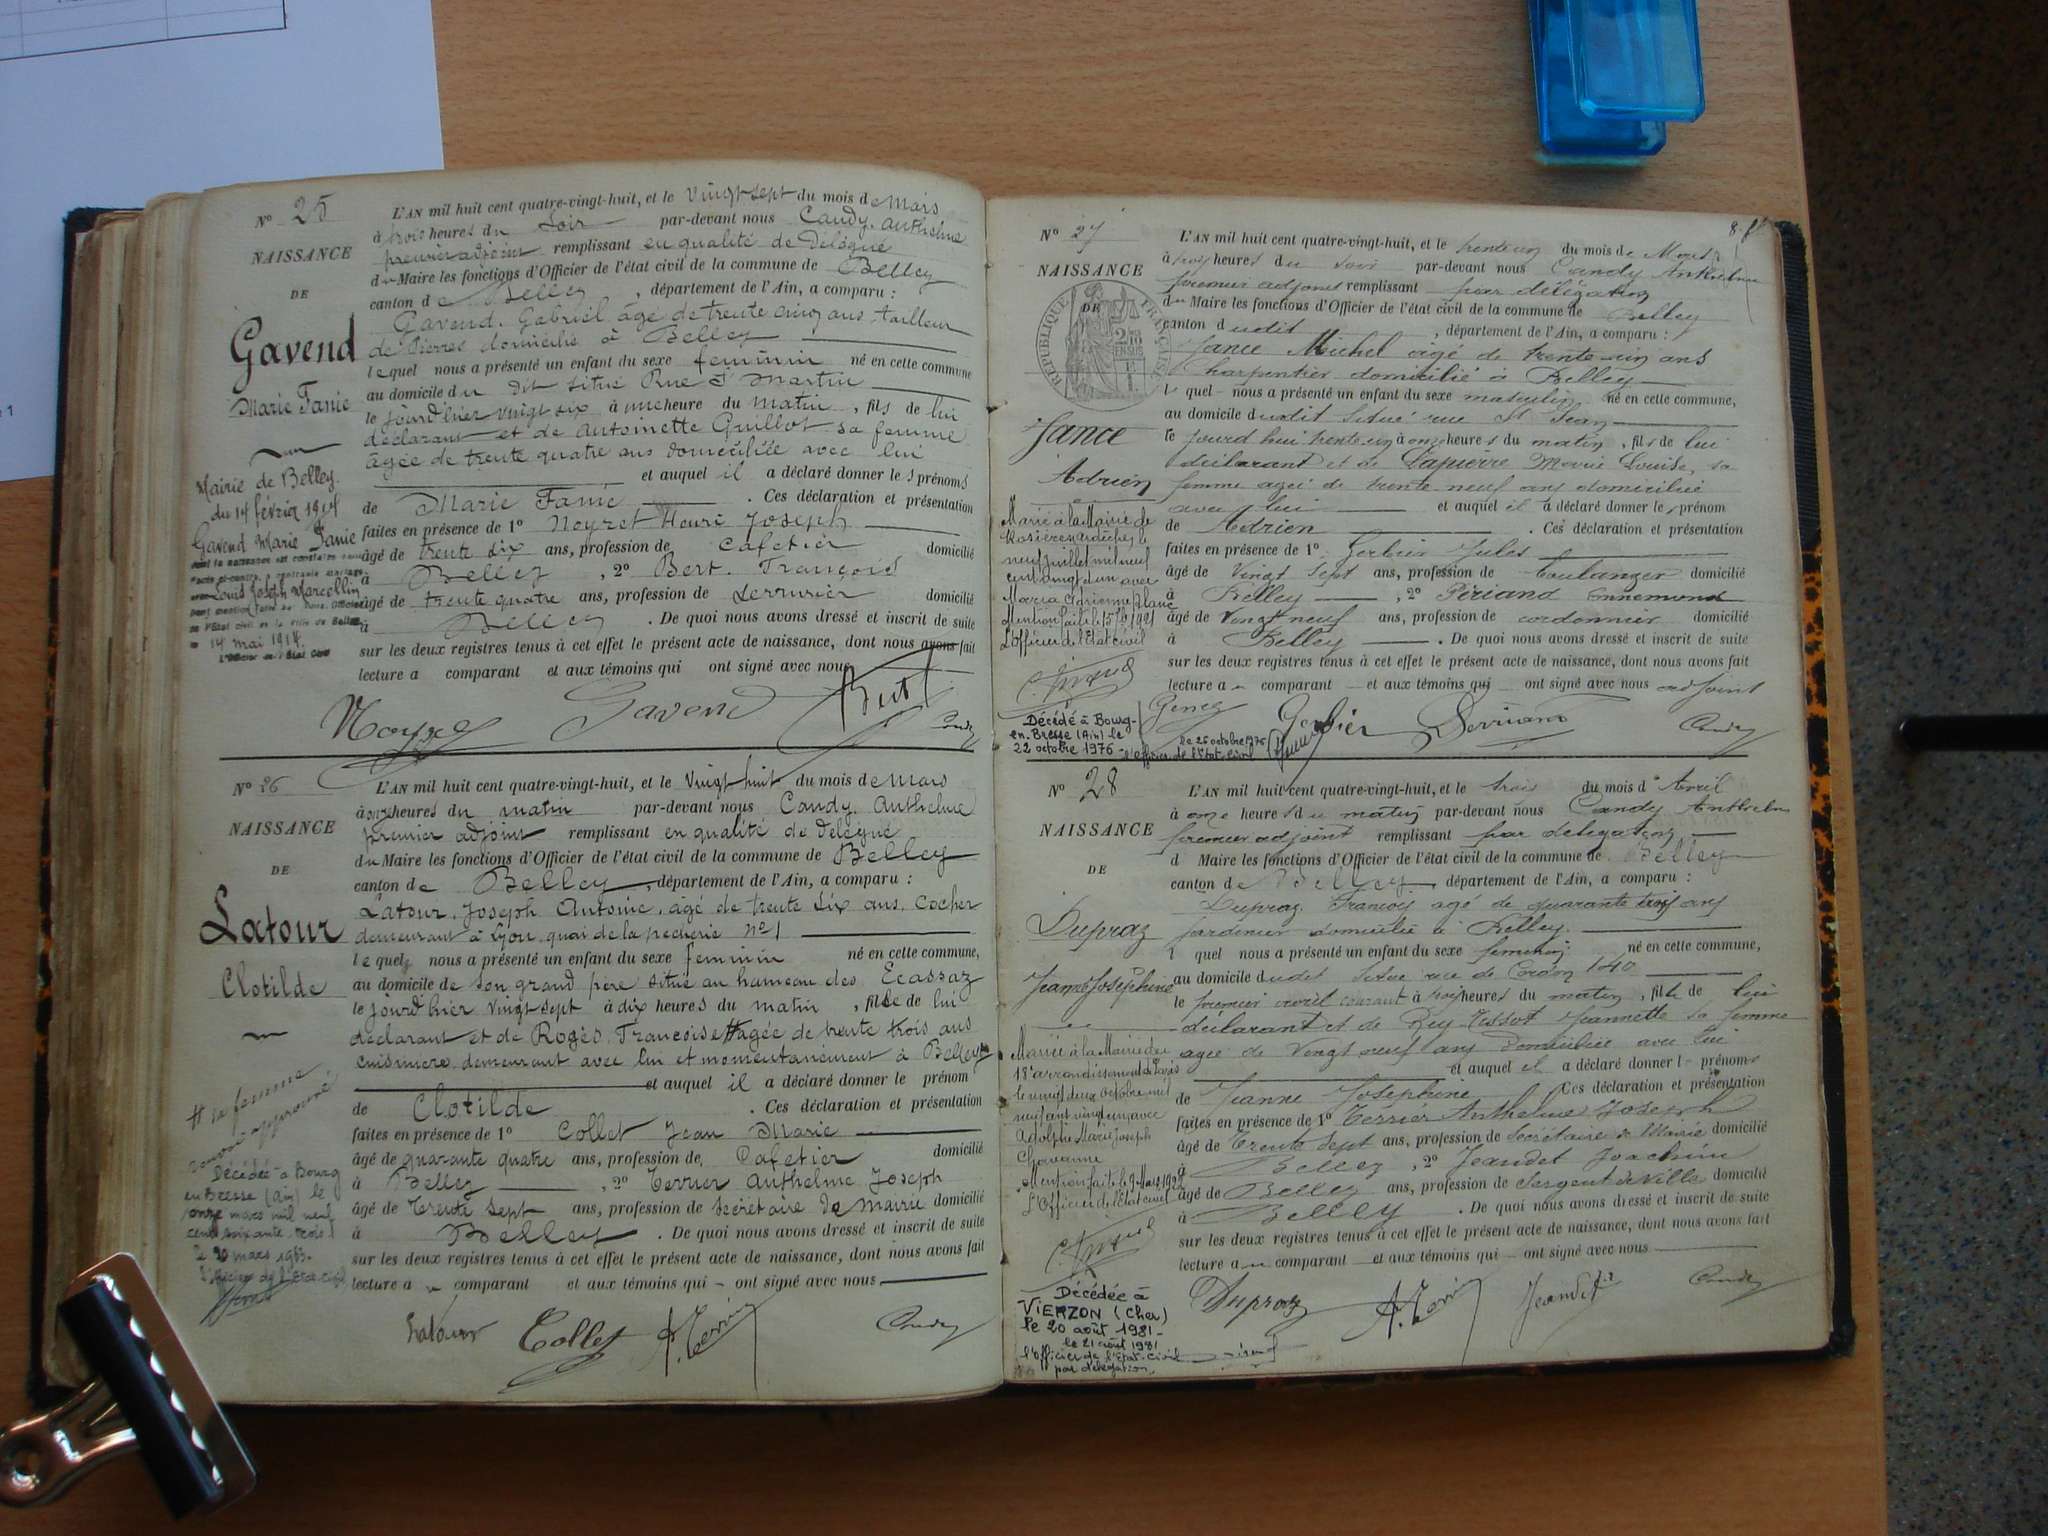 N° 25
NAISSANCE
DE
Gavend
Marie Fanie
Mairie de Belley.
du 14 février 1914
Gavend Marie Fanie
Louis Joseph Marcellin
14 mai 1914.
L'Officier de l'Etat Civil
L'AN mil huit cent quatre-vingt-huit, et le vingt sept du mois de Mars
à trois heures du Soir par-devant nous Candy, Anthelme
premier adjoint remplissant en qualité de Délégué
du Maire les fonctions d'Officier de l'état civil de la commune de Belley
canton de Belley, département de l'Ain, a comparu :
Gavend, Gabriel, âgé de trente cinq ans, tailleur
de Pierres domicilié à Belley
lequel nous a présenté un enfant du sexe feminin né en cette commune
au domicile du dit situé Rue St Martin
le jourd'hier vingt six à une heure du matin, fils de lui
déclarant et de Antoinette Guillot sa femme
âgée de trente quatre ans domiciliée avec lui
et auquel il a déclaré donner les prénoms
de Marie Fanie. Ces déclaration et présentation
faites en présence de 1° Neyret Henri Joseph
âgé de trente six ans, profession de cafetier domicilié
à Belley, 2° Bert. François
âgé de trente quatre ans, profession de Serrurier domicilié
à Belley. De quoi nous avons dressé et inscrit de suite
sur les deux registres tenus à cet effet le présent acte de naissance, dont nous avons fait
lecture a comparant et aux témoins qui ont signé avec nous
Gavend Bert Candy
N° 26
NAISSANCE
DE
Latour
Clotilde
# sa femme
Décédée à Bourg
en Bresse (Ain) le
onze mars mil neuf
cent soixante trois
le 20 mars 1963.
L'officier de l'état civil
L'AN mil huit cent quatre-vingt-huit, et le vingt huit du mois de Mars
à onze heures du matin par-devant nous Candy, Anthelme
premier adjoint remplissant en qualité de délégué
du Maire les fonctions d'Officier de l'état civil de la commune de Belley
canton de Belley, département de l'Ain, a comparu :
Latour, Joseph Antoine, âgé de trente six ans, cocher
demeurant à Lyon quai de la pecherie N° 1
lequel nous a présenté un enfant du sexe feminin né en cette commune,
au domicile de son grand père situé au hameau des Ecassaz
le jourd'hier vingt sept à dix heures du matin, fille de lui
déclarant et de Rogès Françoise # agée de trente trois ans
cuisinière demeurant avec lui et momentanément à Belley
et auquel il a déclaré donner le prénom
de Clotilde. Ces déclaration et présentation
faites en présence de 1° Collet Jean Marie
âgé de quarante quatre ans, profession de Cafetier domicilié
à Belley, 2° Terrier Anthelme Joseph
âgé de trente sept ans, profession de secrétaire de Mairie domicilié
à Belley. De quoi nous avons dressé et inscrit de suite
sur les deux registres tenus à cet effet le présent acte de naissance, dont nous avons fait
lecture au comparant et aux témoins qui ont signé avec nous
Latour Collet A. Terrier Candy
N° 27
NAISSANCE
DE
RÉPUBLIQUE FRANÇAISE
Jance
Adrien
Marié à la Mairie de
Rosières Ardèche, le
neuf juillet mil neuf
cent vingt un avec
Maria Adrienne Blanc
Mention faite le 15 1921
L'Officier de l'Etat civil
Décédé à Bourg-
en-Bresse (Ain) le
22 octobre 1976
le 25 octobre 1976
l'Officier de l'Etat Civil
L'AN mil huit cent quatre-vingt-huit, et le trente un du mois de Mars
à trois heures du soir par-devant nous Candy Anthelme
premier adjoint remplissant par délégation
du Maire les fonctions d'Officier de l'état civil de la commune de Belley
canton dudit, département de l'Ain, a comparu :
Jance Michel âgé de trente un ans
charpentier domicilié à Belley
lequel nous a présenté un enfant du sexe masculin né en cette commune,
au domicile dudit situé rue St Jean
le jourd'hui trente un à onze heures du matin, fils de lui
déclarant et de Lapierre Marie Louise, sa
femme agée de trente neuf ans domiciliée
avec lui et auquel il a déclaré donner le prénom
de Adrien. Ces déclaration et présentation
faites en présence de 1° Gerbier Jules
âgé de Vingt sept ans, profession de boulanger domicilié
à Belley, 2° Périand Ennemond
âgé de Vingt neuf ans, profession de cordonnier domicilié
à Belley. De quoi nous avons dressé et inscrit de suite
sur les deux registres tenus à cet effet le présent acte de naissance, dont nous avons fait
lecture au comparant et aux témoins qui ont signé avec nous adjoint
Gerbier Candy
N° 28
NAISSANCE
DE
Dupraz
Jeanne Joséphine
Mariée à la Mairie du
18e arrondissement de Paris
le vingt deux octobre mil
neuf cent vingt un avec
Adolphe Marie Joseph
Chavanne
Mention faite le 9 Mars 1922
L'Officier de l'Etat civil
Décédée à
VIERZON (Cher)
le 20 août 1981 -
le 21 août 1981
l'officier de l'Etat-Civil
par délégation.
L'AN mil huit cent quatre-vingt-huit, et le trois du mois d'Avril
à onze heures du matin par-devant nous Candy Anthelme
premier adjoint remplissant par délégation,
d Maire les fonctions d'Officier de l'état civil de la commune de Belley
canton de Belley, département de l'Ain, a comparu :
Dupraz, François agé de quarante trois ans
jardinier domicilié à Belley.
l quel nous a présenté un enfant du sexe feminin né en cette commune,
au domicile dudit situé rue de Cordon 140
le premier avril courant à trois heures du matin, fille de lui
déclarant et de Rey Tissot Jeannette sa femme
agée de Vingt neuf ans domiciliée avec lui
et auquel il a déclaré donner l prénoms
de Jeanne Joséphine Ces déclaration et présentation
faites en présence de 1° Terrier Anthelme Joseph
âgé de Trente Sept ans, profession de Secrétaire de Mairie domicilié
à Belley, 2° Jeandet Joachim
âgé de Belley ans, profession de Sergent de Ville domicilié
à Belley. De quoi nous avons dressé et inscrit de suite
sur les deux registres tenus à cet effet le présent acte de naissance, dont nous avons fait
lecture au comparant et aux témoins qui ont signé avec nous
Dupraz A. Terrier Jeandet Candy